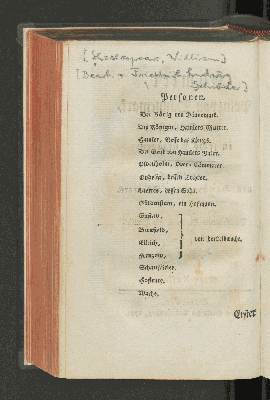 [Shakespeare, William]
[Bearb. v. Friedrich Ludwig
Schröder]
Personen.
Der König von Dännemark.
Die Königin, Hamlets Mutter.
Hamlet, Neffe des Königs.
Der Geist von Hamlets Vater.
Oldenholm, Ober-Kämmerer.
Ophelia, dessen Tochter.
Laertes, dessen Sohn.
Güldenstern, ein Hofmann.
Gustav,
Bernfield,
Ellrich,
Frenzow,
von der Leibwache.
Schauspieler.
Hofleute.
Wache.
Erster